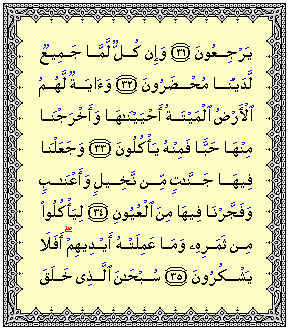 يَرْجِعُونَ ﴿٣١﴾ وَإِن كُلٌّ لَّمَّا جَمِيعٌ
لَّدَيْنَا مُحْضَرُونَ ﴿٣٢﴾ وَءَايَةٌ لَّهُمُ
ٱلْأَرْضُ ٱلْمَيْتَةُ أَحْيَيْنَـٰهَا وَأَخْرَجْنَا
مِنْهَا حَبًّا فَمِنْهُ يَأْكُلُونَ ﴿٣٣﴾ وَجَعَلْنَا
فِيهَا جَنَّـٰتٍ مِّن نَّخِيلٍ وَأَعْنَـٰبٍ
وَفَجَّرْنَا فِيهَا مِنَ ٱلْعُيُونِ ﴿٣٤﴾ لِيَأْكُلُوا۟
مِن ثَمَرِهِۦ وَمَا عَمِلَتْهُ أَيْدِيهِمْ ۖ أَفَلَا
يَشْكُرُونَ ﴿٣٥﴾ سُبْحَـٰنَ ٱلَّذِى خَلَقَ